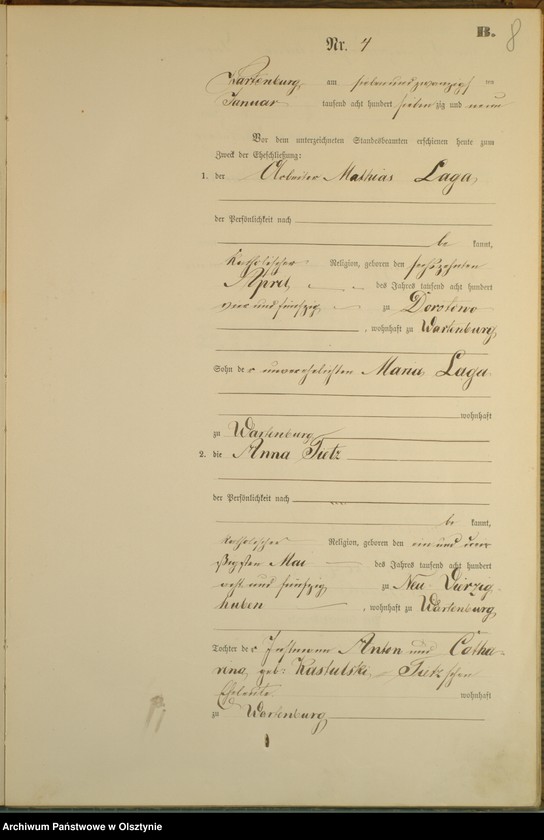 B.
8
Nr. 4
Wartenburg am siebenundzwanzigsten
Januar tausend acht hundert siebenzig und neun
Vor dem unterzeichneten Standesbeamten erschienen heute zum
Zweck der Eheschließung:
1. der Arbeiter Mathias Laga,
der Persönlichkeit nach
be kannt,
katholischer Religion, geboren den sechszehnten
April des Jahres tausend acht hundert
vier und fünfzig zu Dorotowo
, wohnhaft zu Wartenburg,
Sohn der unverehelichten Maria Laga
wohnhaft
zu Wartenburg
2. die Anna Tietz
der Persönlichkeit nach
be kannt,
katholischer Religion, geboren den ein und drei-
ßigsten Mai des Jahres tausend acht hundert
acht und fünfzig zu Neu Vierzig-
huben , wohnhaft zu Wartenburg,
Tochter der Instmann Anton und Catha-
rina, geb: Kastulski, Tietz'schen
Eheleute wohnhaft
zu Wartenburg
Archiwum Państwowe w Olsztynie